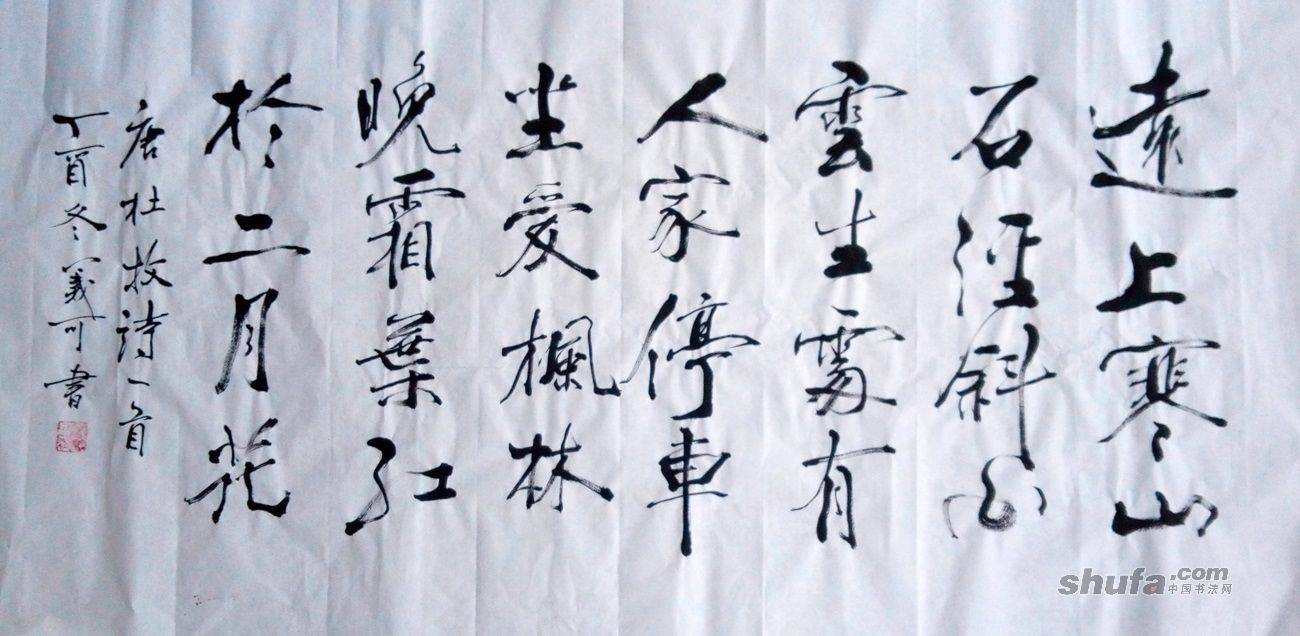 遠上寒山
石徑斜白
雲生處有
人家停車
坐愛楓林
晚霜葉紅
於二月花
唐杜牧詩一首
丁酉冬義可書
shufa.com
中国书法网